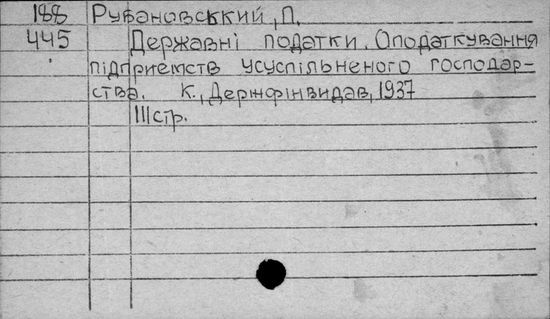 188 Рубановський, П.
445 Державні податки. Оподаткування
підприємств усуспільненого господар-
ства. К., Держфінвидав, 1937
111 стр.